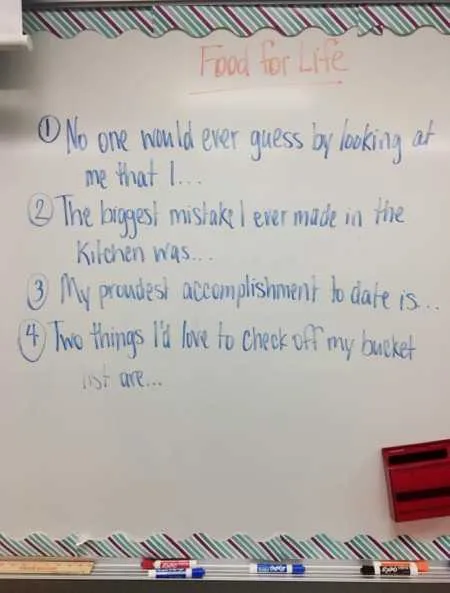 Food for Life
① No one would ever guess by looking at
me that I...
② The biggest mistake I ever made in the
Kitchen was...
③ My proudest accomplishment to date is...
④ Two things I'd love to check off my bucket
list are...
EXPO